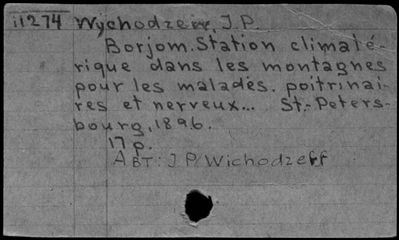 11274 Wychodzew, J.P.
Borjom. Station climaté-
rique dans les montagnes
pour les malades. poitrinai-
res et nerveux... St.-Peters-
bourg, 1896.
17 p.
Авт: J P Wichodzeff